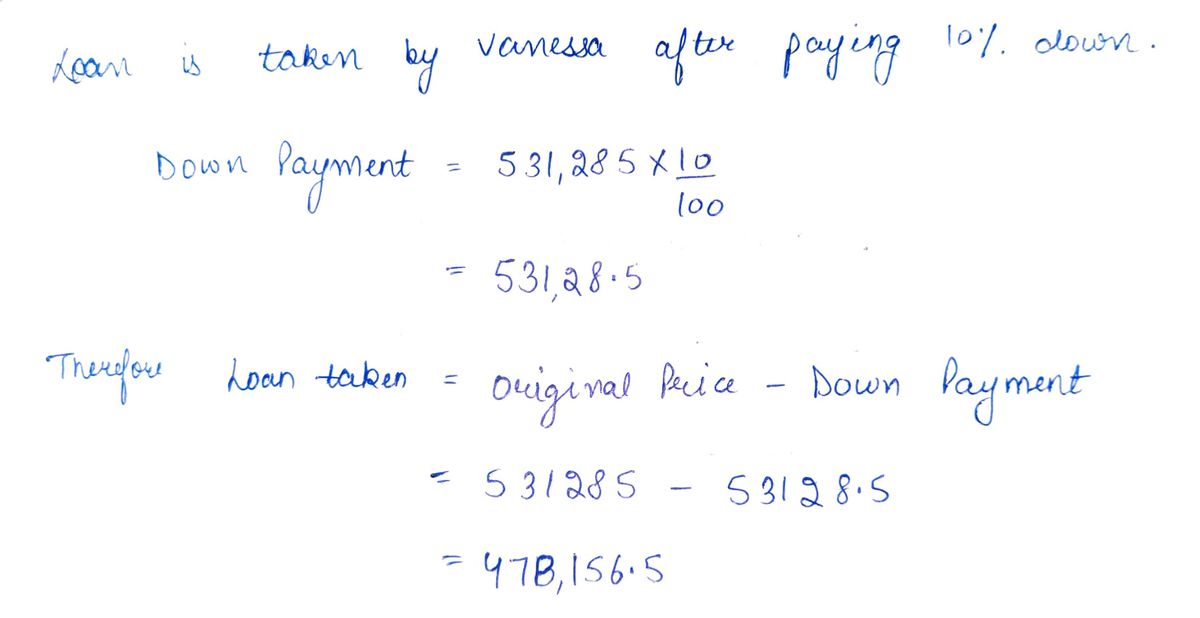 Loan is taken by Vanessa after paying 10% down.
Down Payment = 531,285 X 10
100
= 531,28.5
Therefore Loan taken = Original Price - Down Payment
= 531285 - 53128.5
= 478,156.5